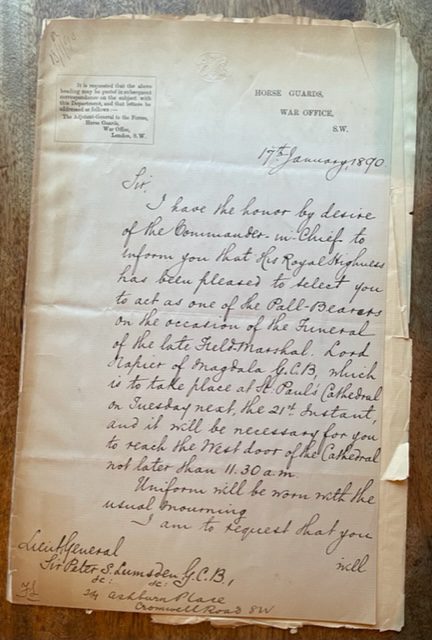 It is requested that the above
heading may be quoted in subsequent
correspondence on the subject with
this Department, and that letters be
addressed as follows:—
The Adjutant-General to the Forces,
Horse Guards,
War Office,
London, S.W.
HORSE GUARDS,
WAR OFFICE,
S.W.
17th January, 1890
Sir,
I have the honor by desire
of the Commander-in-Chief to
inform you that His Royal Highness
has been pleased to select you
to act as one of the Pall-Bearers
on the occasion of the Funeral
of the late Field Marshal. Lord
Napier of Magdala G.C.B, which
is to take place at St. Paul's Cathedral
on Tuesday next, the 21st Instant,
and it will be necessary for you
to reach the West door of the Cathedral
not later than 11.30 a.m.
Uniform will be worn with the
usual mourning
I am to request that you
will
Lieut General
Sir Peter S. Lumsden G.C.B,
&c: &c:
Ashburn Place
Cromwell Road SW